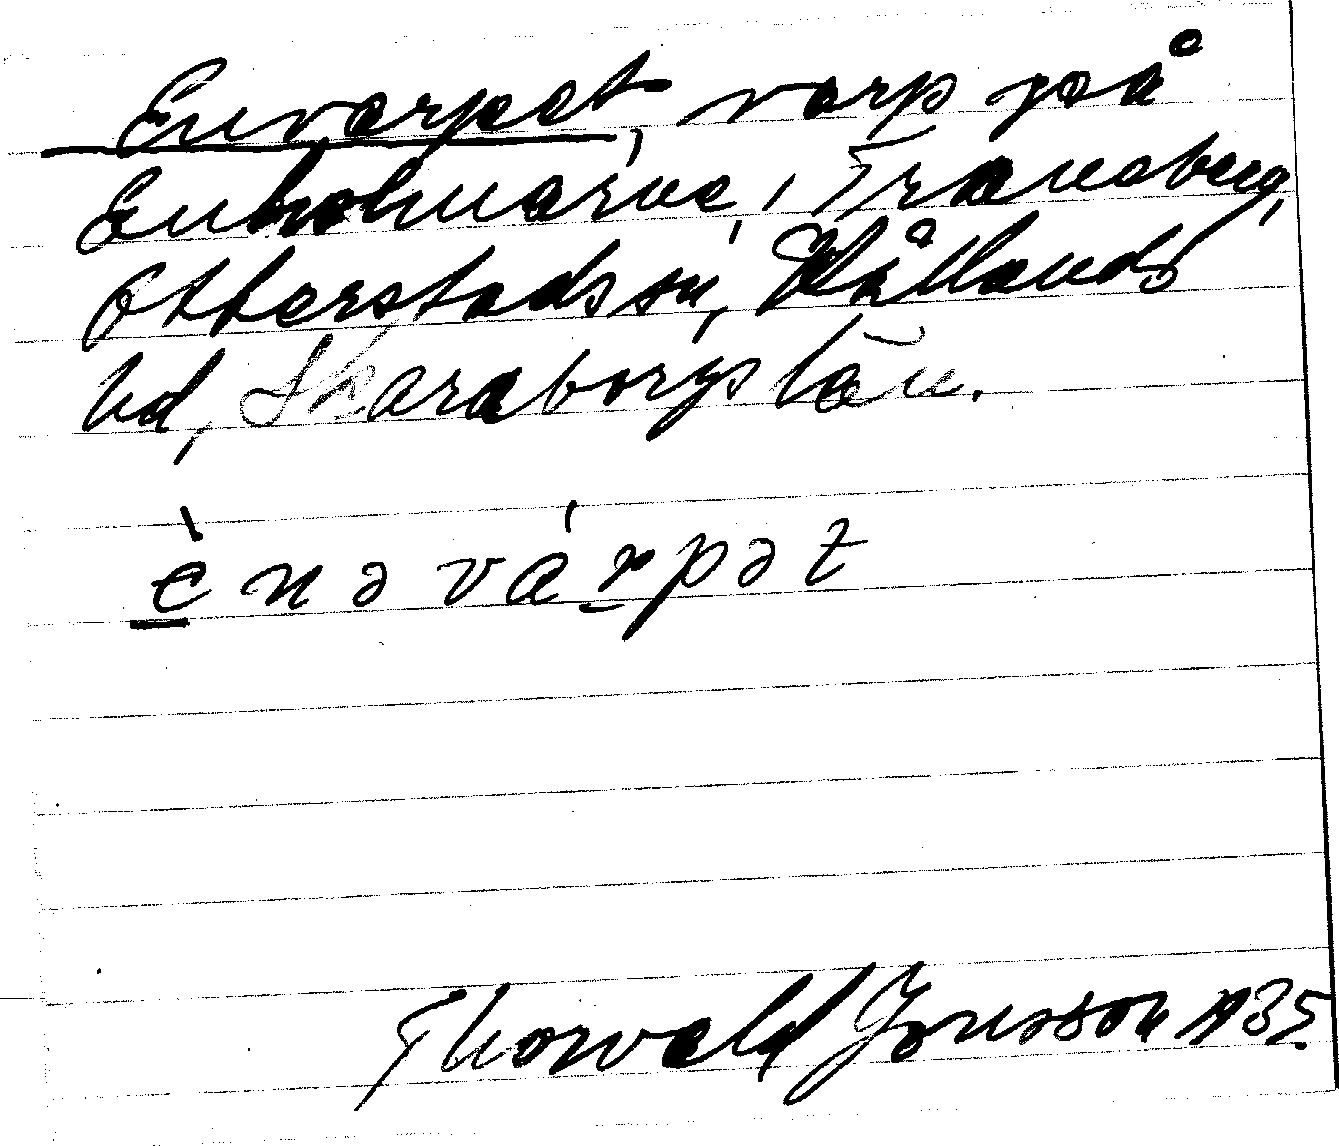 Envarpet, varp på
Enholmarna, Traneberg,
Otterstads sn, Kållands
hd, Skaraborgs län.
ènəvárpət
Thorvald Jonsson 1935